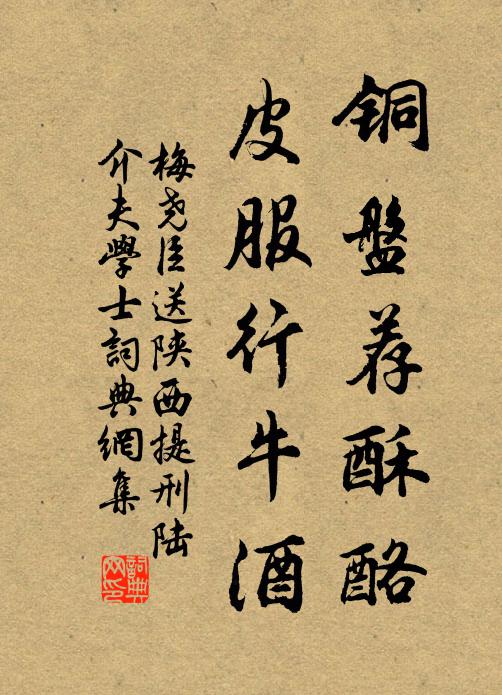 铜盤荐酥酪
皮服行牛酒
梅尧臣送陕西提刑陆
介夫學士詞典網集
詞典网印